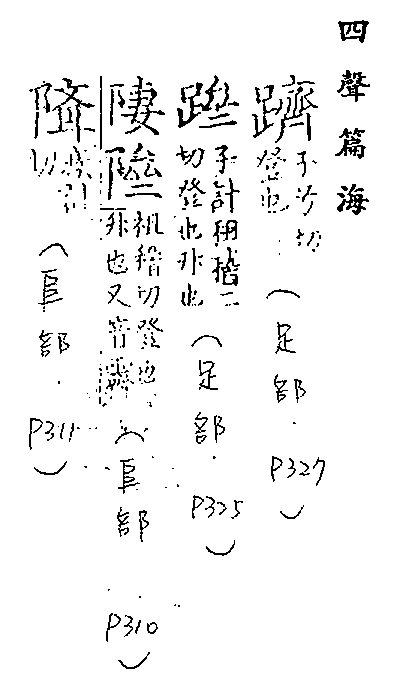 四聲篇海
躋
子兮切
登也
(足部.P327)
子計祖稽二
切登也非也
(足部.P325)
祖稽切登也
非也又音齊
(阜部 P310)
切
(阜部.P311)